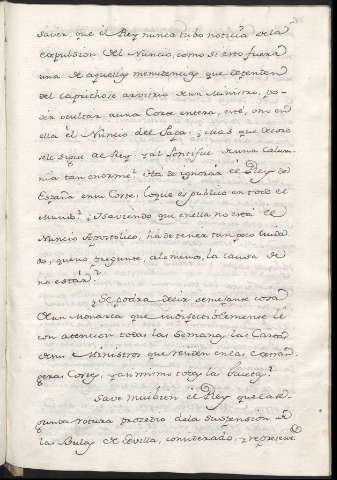 saver, que el Rey nunca tubo noticia de la
expulsion del Nuncio, como si esto fuera
una de aquellas menudencias que dependen
del caprichoso arvitrio de un Ministro, po-
der ocultar a una Corte entera, esté, ono en
ella él Nuncio del Papa; y mas que decoro
sele sigue al Rey y al Pontifice de una Calum-
nia tan enorme? Ha de ignorar él Rey de
España en su Corte, loque es publico en todo el
Mundo? y Saviendo que en ella no está el
Nuncio Apostolico, ha de tener tan poco cuida-
do, que no pregunte, alo menos, la causa de
no estár?
¿Se podra decir semejante cosa
de un Monarca que indefectiblemente lee
con atencion todas las Semanas, las Cartas
de sus Ministros que residen en las extran-
geras Cortes, y an mismo toda la Gaceta?
Save mui bien él Rey que la se-
gunda rotura procedio dela suspension de
las Bulas de Sevilla, considerado, y represen